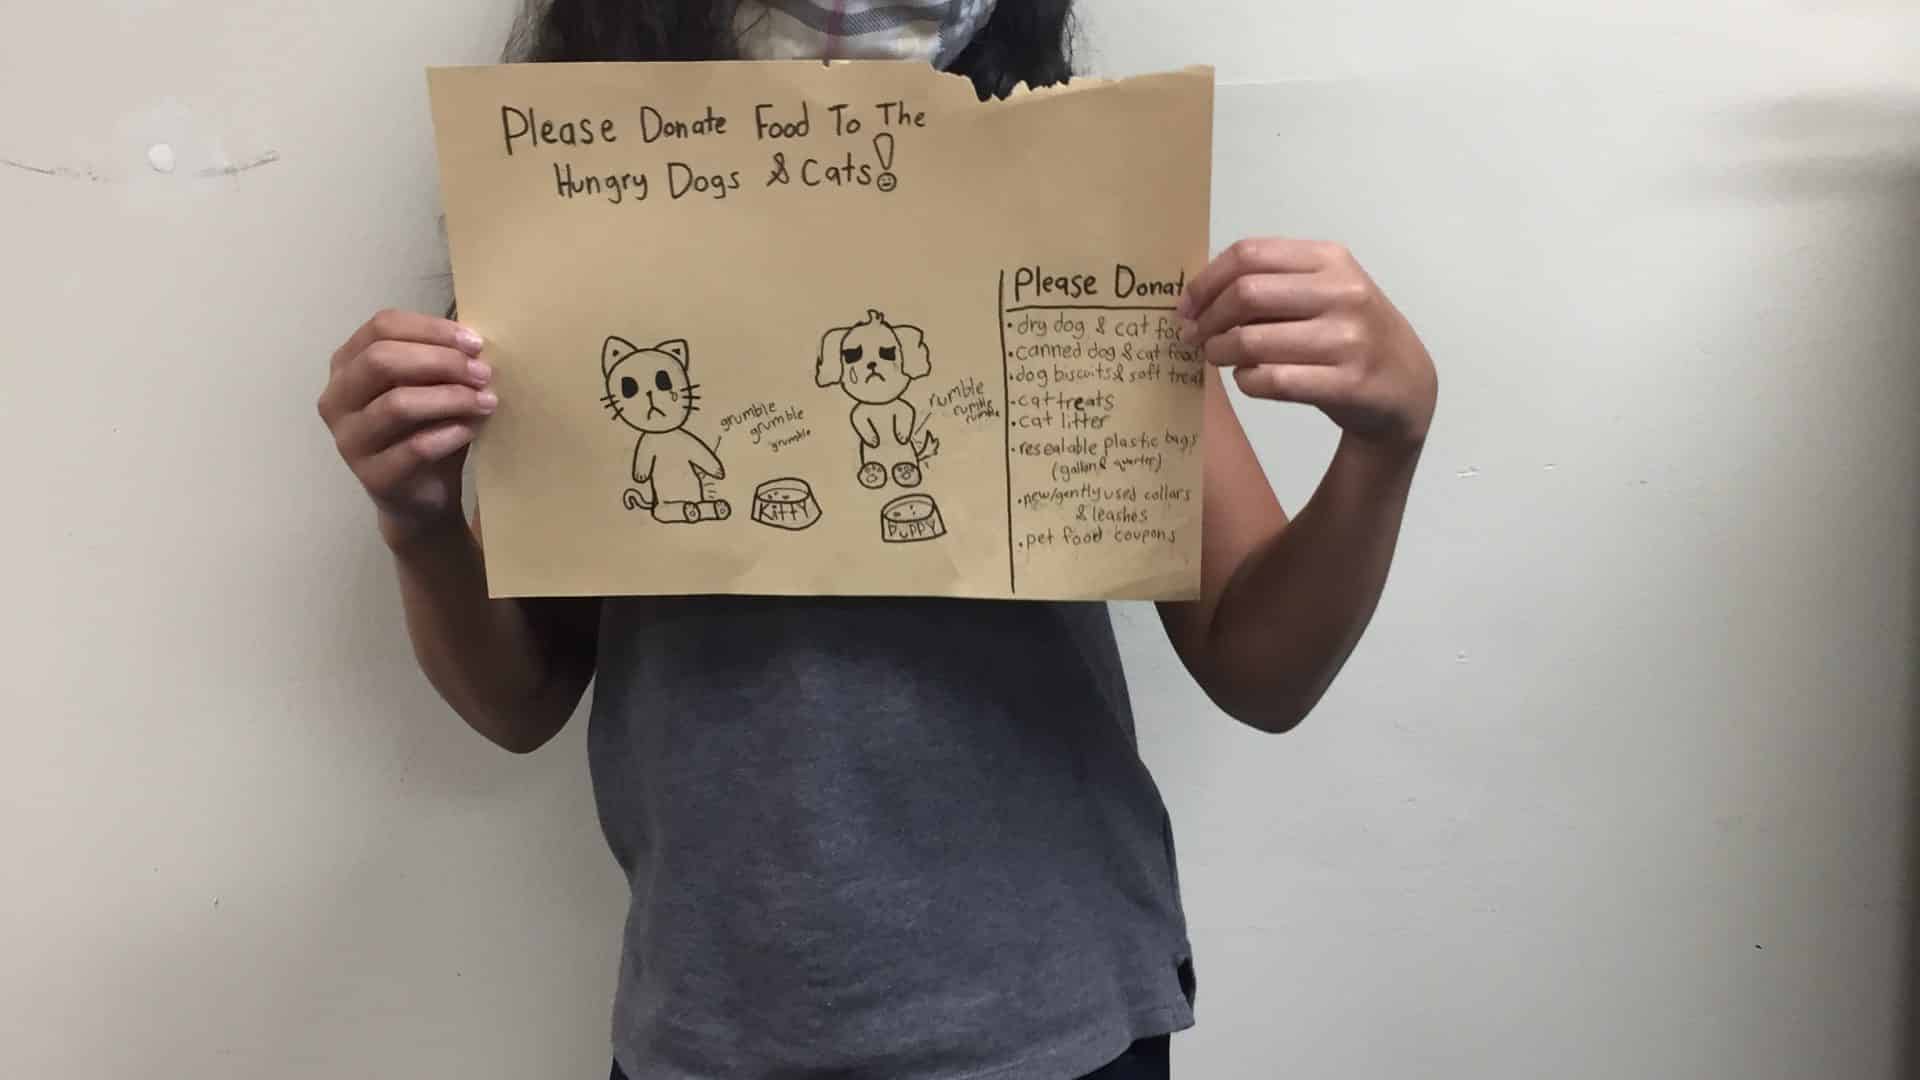 Please Donate Food To The
Hungry Dogs & Cats!
grumble
grumble
grumble
rumble
rumble
rumble
KiTTY
PUPPY
Please Donat
• dry dog & cat foo
• canned dog & cat food
• dog biscuits & soft treat
• cat treats
• cat litter
• resealable plastic bags
(gallon & quarter)
• new/gently used collars
& leashes
• pet food coupons